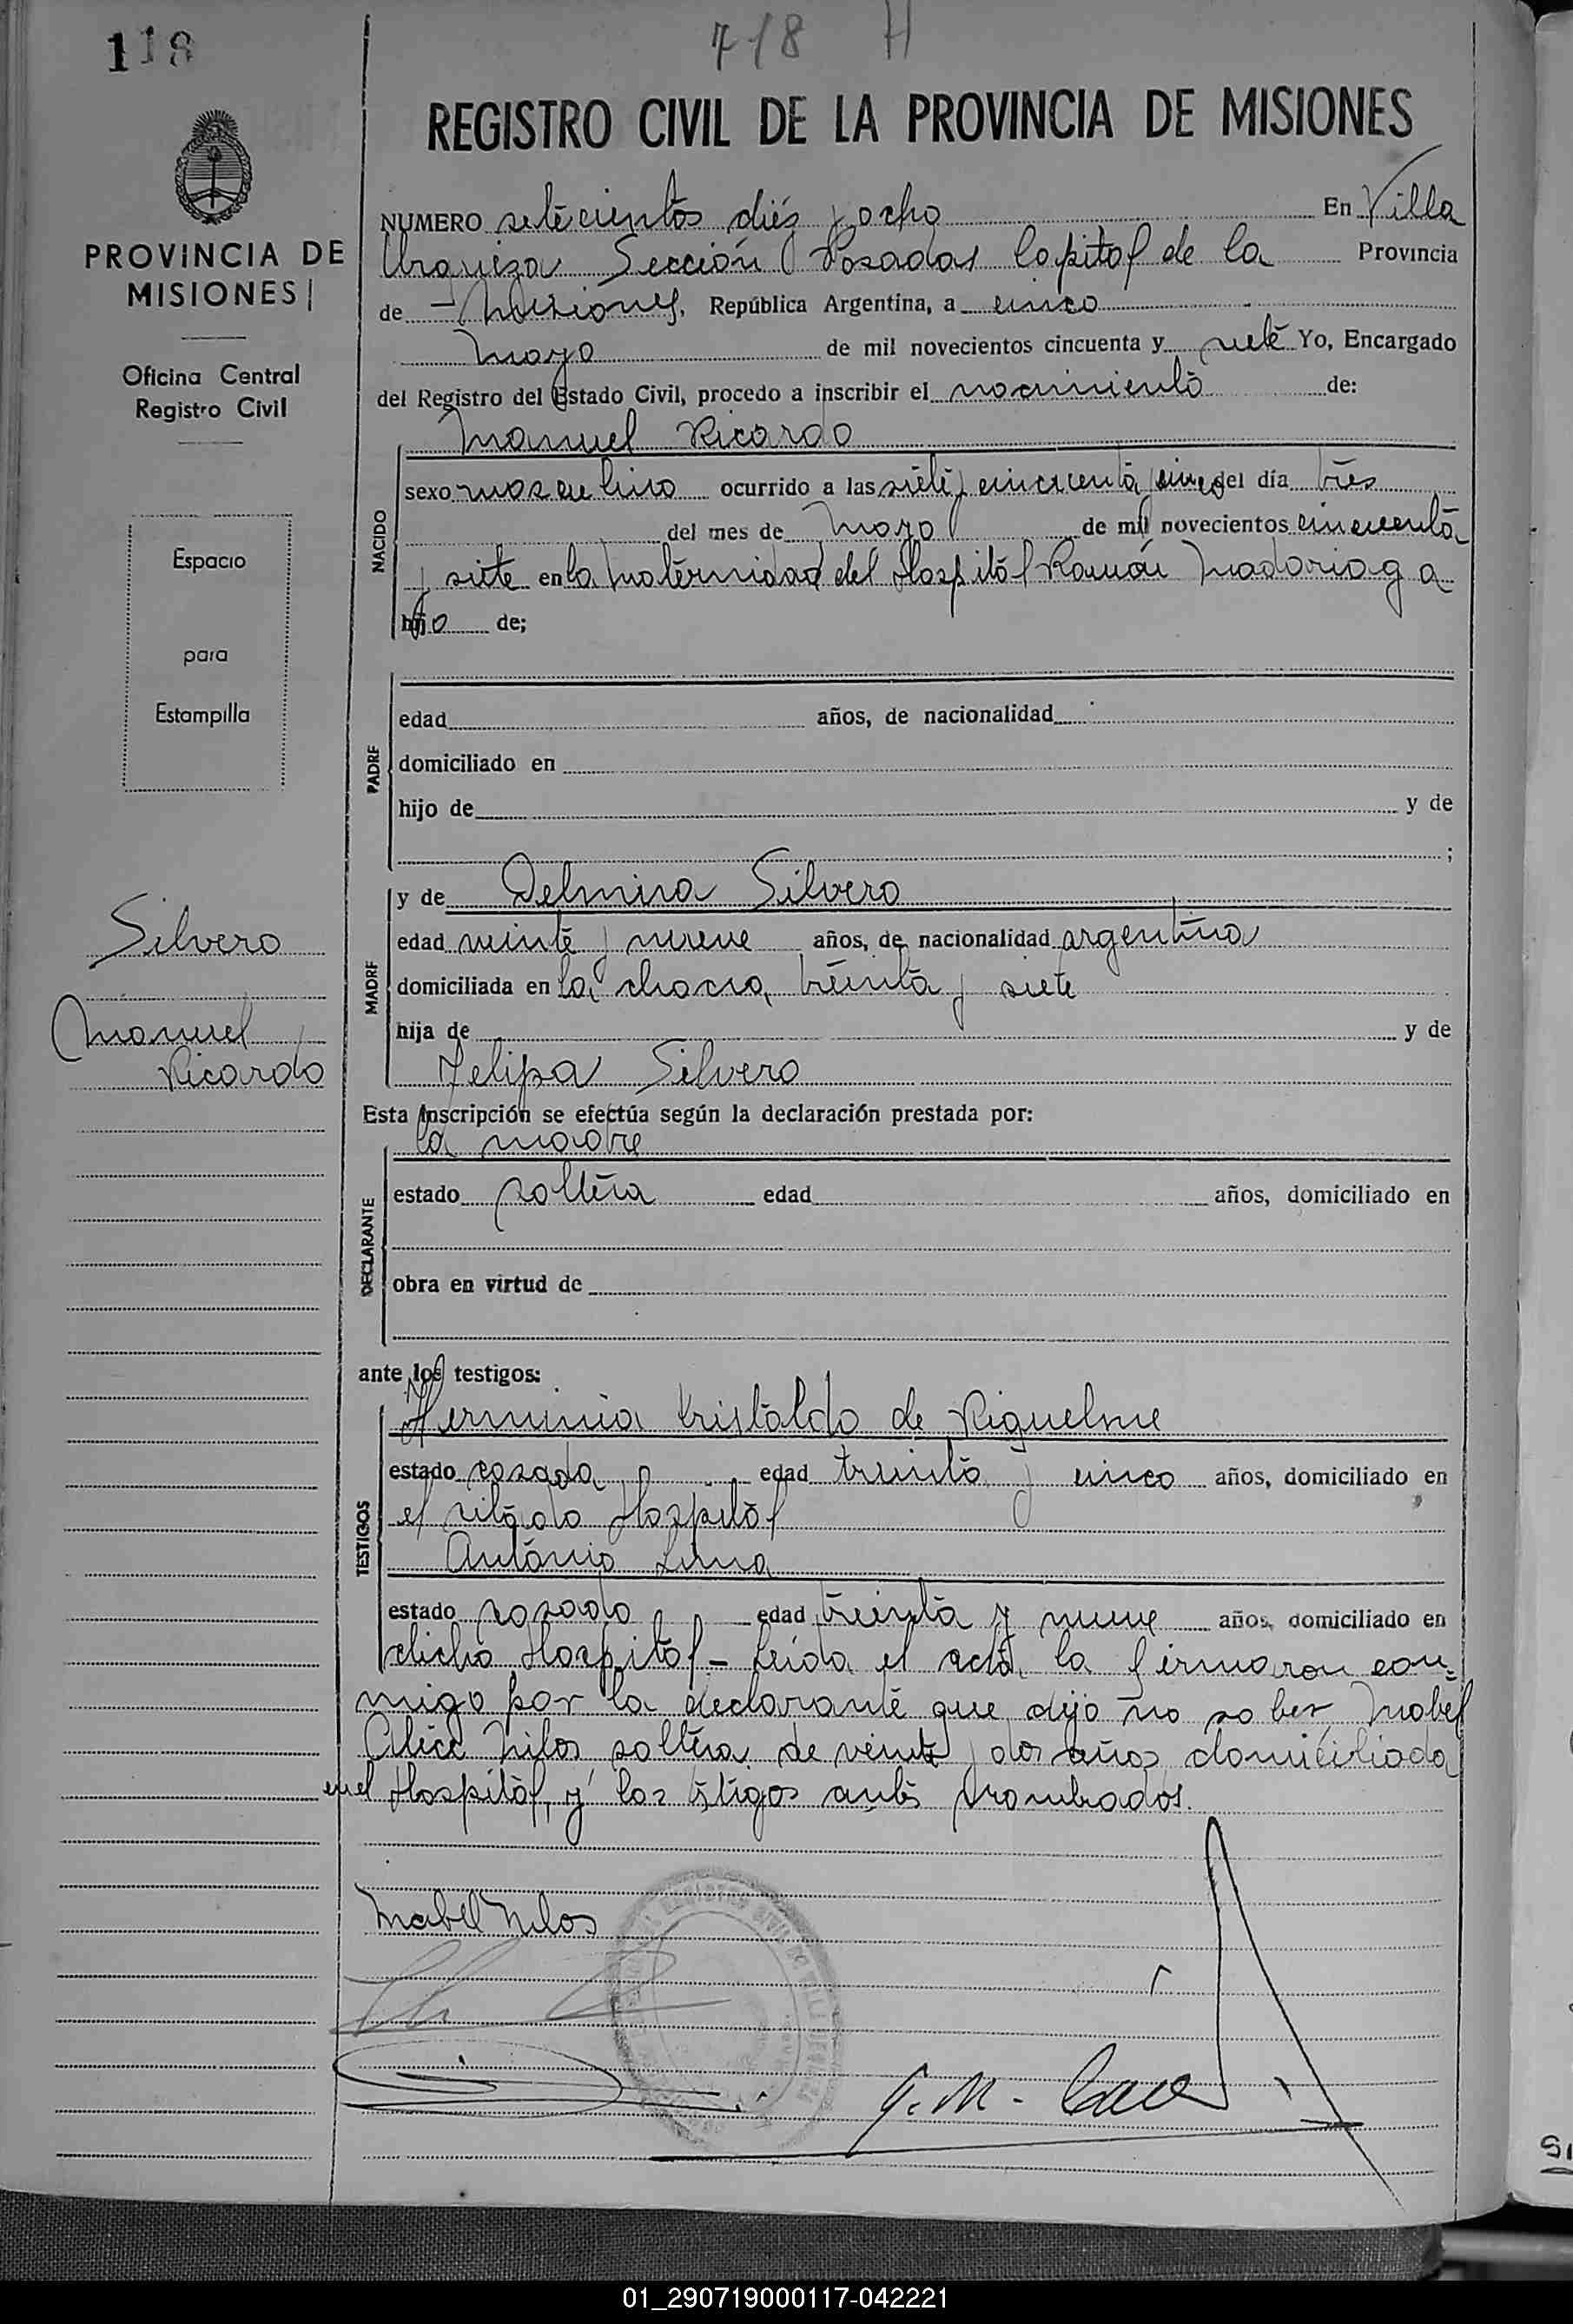 118
718 H
REGISTRO CIVIL DE LA PROVINCIA DE MISIONES
PROVINCIA DE
MISIONES
Oficina Central
Registro Civil
Espacio
para
Estampilla
Silvero
Manuel
Ricardo
NUMERO setecientos diés y ocho En Villa
Urquiza Sección Posadas Capital de la Provincia
de Misiones, República Argentina, a cinco
mayo de mil novecientos cincuenta y siete Yo, Encargado
del Registro del Estado Civil, procedo a inscribir el nacimiento de:
NACIDO
Manuel Ricardo
sexo masculino ocurrido a las siete y cincuenta y cinco del día tres
del mes de mayo de mil novecientos cincuenta
y siete en la Maternidad del Hospital Ramón Madariaga
hijo de;
PADRE
edad años, de nacionalidad
domiciliado en
hijo de y de
;
MADRE
y de Delmira Silvero
edad veinte y nueve años, de nacionalidad argentina
domiciliada en la chacra treinta y siete
hija de y de
Felipa Silvero
Esta inscripción se efectúa según la declaración prestada por:
DECLARANTE
la madre
estado soltera edad años, domiciliado en
obra en virtud de
ante los testigos:
TESTIGOS
Herminia Kristaldo de Riquelme
estado casada edad treinta y cinco años, domiciliado en
el citado Hospital
Antonio Luna
estado casado edad treinta y nueve años, domiciliado en
dicho Hospital - Leída el acta la firmaron con-
migo por la declarante que dijo no saber Mabel
Alice Milos soltera de veinte y dos años domiciliada
en el Hospital, y los testigos antes nombrados.
Mabel Milos
G. M.
01_290719000117-042221